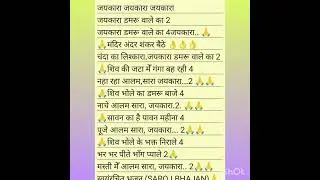 जयकारा जयकारा जयकारा
जयकारा डमरू वाले का 2
जयकारा डमरू वाले का 4जयकारा.. 🙏
🙏मंदिर अंदर शंकर बैठे 👌👌👌
चंदा का लिश्कारा.जयकारा डमरूवाले का 2
🙏शिव की जटा में गंगा बह रही 4
नहा रहा आलम,सारा जयकारा...2🙏
🙏शिव भोले का डमरू बाजे 4
नाचे आलम सारा, जयकारा.2. 🙏🙏
🙏सावन का है पावन महीना 4
पूजे आलम सारा, जयकारा... 2🙏🙏
🙏शिव भोले के भक्त निराले 4
भर भर पीते भाँग प्याले 2🙏
मस्ती में आलम सारा, जयकारा.. 2🙏🙏
स्वयंरचित भजन (SAROJ BHAJAN)🙏